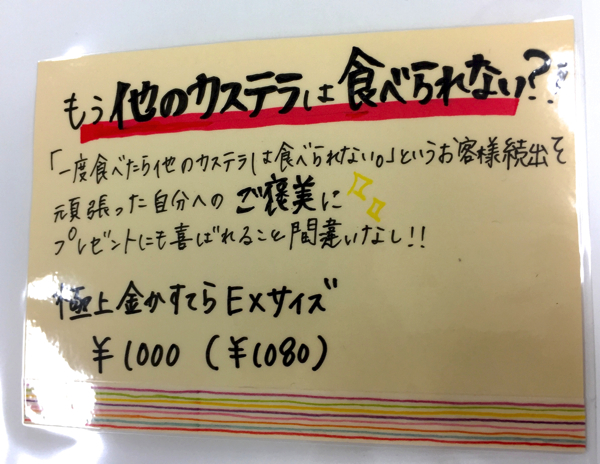 もう他のカステラは食べられない??
「一度食べたら他のカステラは食べられない。」というお客様続出で
頑張った自分へのご褒美に
プレゼントにも喜ばれること間違いなし!!
極上金かすてらEXサイズ
¥1000(¥1080)